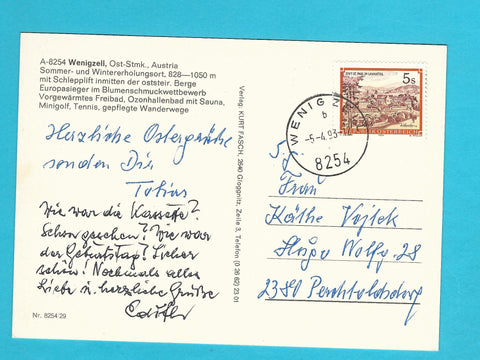 A-8254 Wenigzell, Ost-Stmk., Austria
Sommer- und Wintererholungsort, 828—1050 m
mit Schlepplift inmitten der oststeir. Berge
Europasieger im Blumenschmuckwettbewerb
Vorgewärmtes Freibad, Ozonhallenbad mit Sauna,
Minigolf, Tennis, gepflegte Wanderwege
Herzliche Ostergrüße
senden Dir
Tobias
Wie war die Kassette?
Schon gesehen? Wie war
der Geburtstag? Sicher
schön! Nochmals alles
Liebe u. herzliche Grüße
Nr. 8254/29
Verlag: KURT FASCH, 2640 Gloggnitz, Zeile 3, Telefon (0 26 62) 23 01
5 s
REPUBLIK ÖSTERREICH
WENIGZELL
b
-5.-4.93-
8254
Frau
Käthe Vojtek
Hugo Wolfg. 28
2380 Perchtoldsdorf